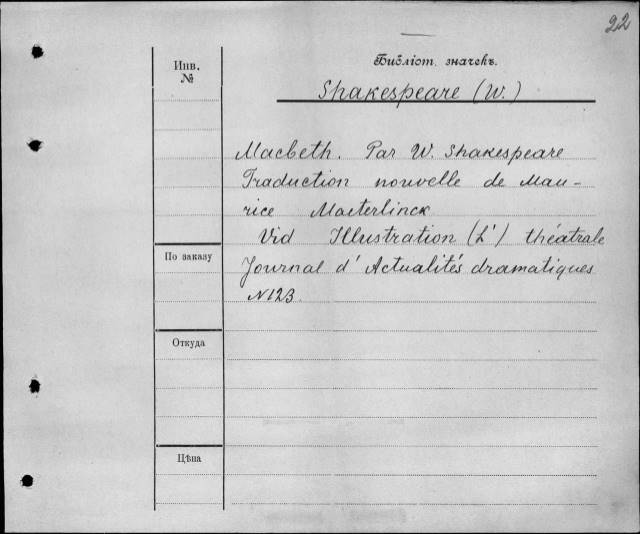 22
Инв.
№
Библіот. значекъ.
Shakespeare (W.)
Macbeth. Par W. Shakespeare
Traduction nouvelle de Mau-
rice Maeterlinck
Vid Illustration (L') théatrale
Journal d' Actualités dramatiques
N123.
По заказу
Откуда
Цѣна